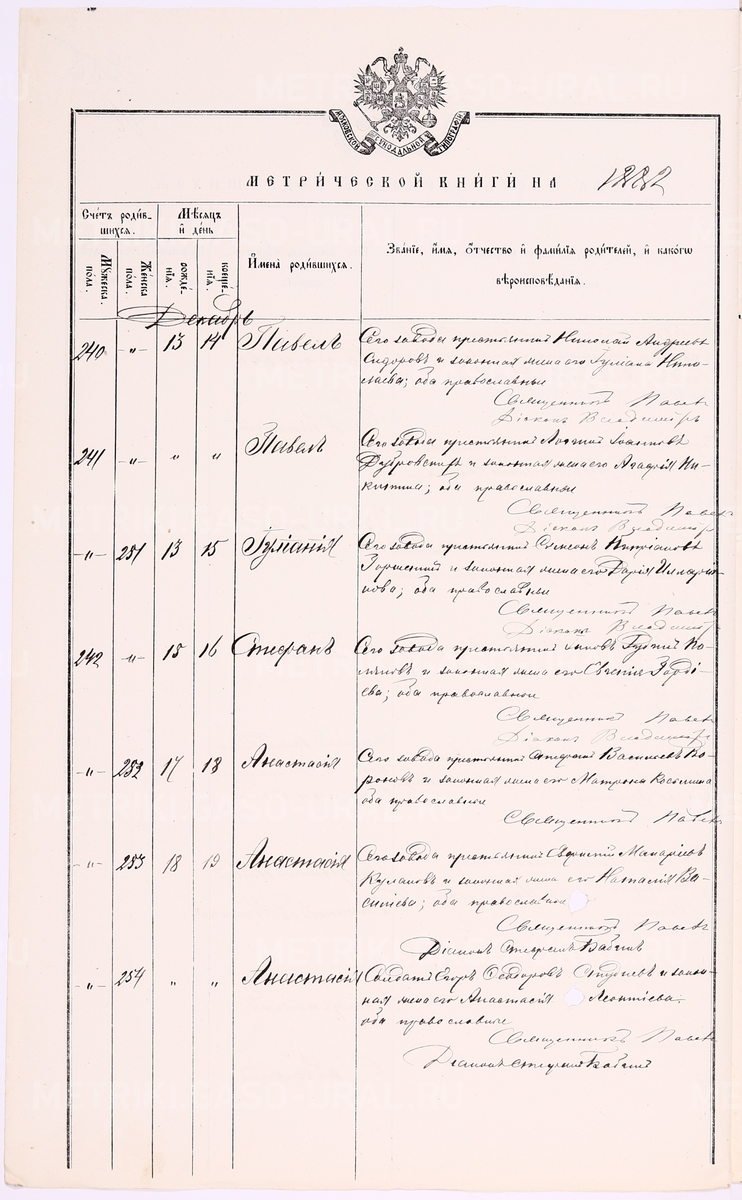 МОСКОВСКОЙ СѴНОДАЛЬНОЙ ТИПОГРАФІИ
МЕТРИ́ЧЕСКОЙ КНИ́ГИ НА 1882
Сче́тъ роди́в-
шихся.
Мѣ́сяцъ
и҆ де́нь
И҆мена̀ роди́вшихся.
Зва́ніе, и҆́мя, ѻ҆́тчество и҆ фами́лія роди́телей, и҆ како́гѡ
вѣроисповѣ́данія.
Мꙋ́жеска
пола.
Же́нска
пола.
рожде́-
нія.
креще́-
нія.
Декабрь
240 -„- 13 14 Павелъ Сего завода крестьянинъ Николай Андреевъ
Сидоровъ и законная жена его Іуліана Нико-
лаева; оба православные
Священникъ Павелъ
Діаконъ Владиміръ
241 -„- „ „ Павелъ Сего завода крестьянинъ Іоанновъ
Дубровскихъ и законная жена его Агафія Ни-
китина; оба православные
Священникъ Павелъ
Діаконъ Владиміръ
-„- 251 13 15 Іуліанія Сего завода крестьянинъ Симеонъ Кипріановъ
и законная жена его Дарія Илларіо-
нова; оба православные
Священникъ Павелъ
Діаконъ Владиміръ
242 -„- 15 16 Стефанъ Сего завода крестьянинъ Гурій
и законная жена его Евгенія Горді-
ева; оба православные
Священникъ Павелъ
Діаконъ Владиміръ
-„- 252 17 18 Анастасія Сего завода крестьянинъ Стефанъ Васильевъ Во-
роновъ и законная жена его Матрона Космина
оба православные
Священникъ Павелъ
-„- 253 18 19 Анастасія Сего завода крестьянинъ Макаріевъ
Кулаковъ и законная жена его Наталія Ва-
силіева; оба православные
Священникъ Павелъ
Діаконъ Стефанъ Бабинъ
-„- 254 „ „ Анастасія Солдатъ Егоръ Ѳеодоровъ и закон-
ная жена его Анастасія Леонтіева
оба православные
Священникъ Павелъ
Діаконъ Стефанъ Бабинъ